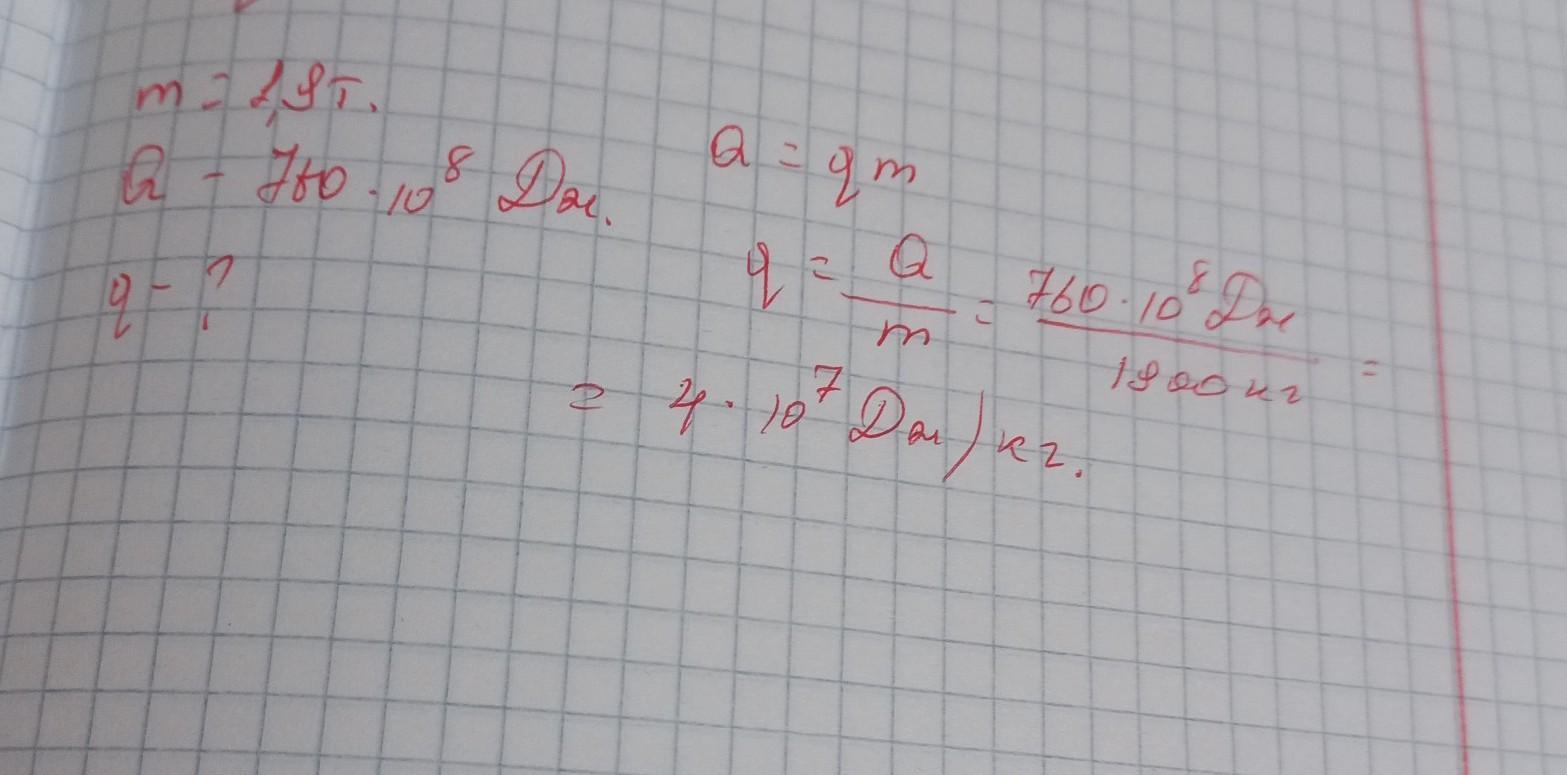 m = 1,9т.
Q - 760 · 10⁸ Дж.
q - ?
Q = qm
q = Q/m = 760 · 10⁸ Дж / 1900 кг =
= 4 · 10⁷ Дж/кг.